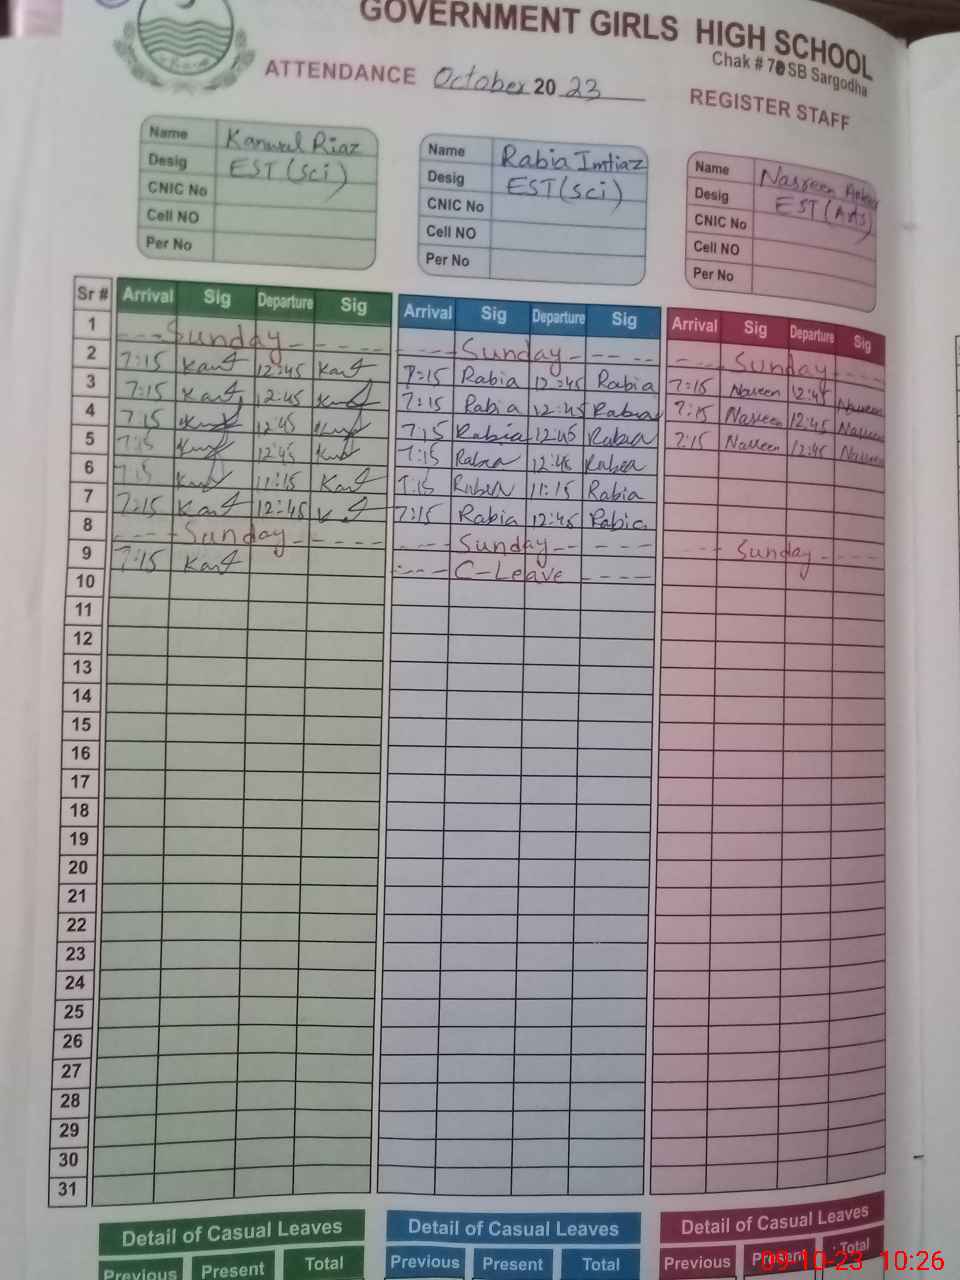 GOVERNMENT GIRLS HIGH SCHOOL
Chak # 78 SB Sargodha
ATTENDANCE October 2023
REGISTER STAFF
Name Kanwal Riaz
Desig EST (Sci)
CNIC No
Cell NO
Per No
Name Rabia Imtiaz
Desig EST (Sci)
CNIC No
Cell NO
Per No
Name Nasreen
Desig EST (Arts)
CNIC No
Cell NO
Per No
Sr # Arrival Sig Departure Sig Arrival Sig Departure Sig Arrival Sig Departure Sig
1 ---Sunday- ---- ----Sunday- -- -- ----Sunday----
2 7:15 12:45 7:15 Rabia 12:45 Rabia 7:15 Nasreen 12:45 Nasreen
3 7:15 12:45 7:15 Rabia 12:45 Rabia 7:15 Nasreen 12:45 Nasreen
4 7:15 12:45 7:15 Rabia 12:45 Rabia 7:15 Nasreen 12:45 Nasreen
5 7:15 12:45 7:15 Rabia 12:45 Rabia
6 7:15 11:15 7:15 Rabia 11:15 Rabia
7 7:15 12:45 7:15 Rabia 12:45 Rabia
8 ----Sunday----- ----Sunday-- --- ---Sunday----
9 7:15 ----C-Leave ----
10
11
12
13
14
15
16
17
18
19
20
21
22
23
24
25
26
27
28
29
30
31
Detail of Casual Leaves Detail of Casual Leaves Detail of Casual Leaves
Previous Present Total Previous Present Total Previous Present Total
09-10-23 10:26